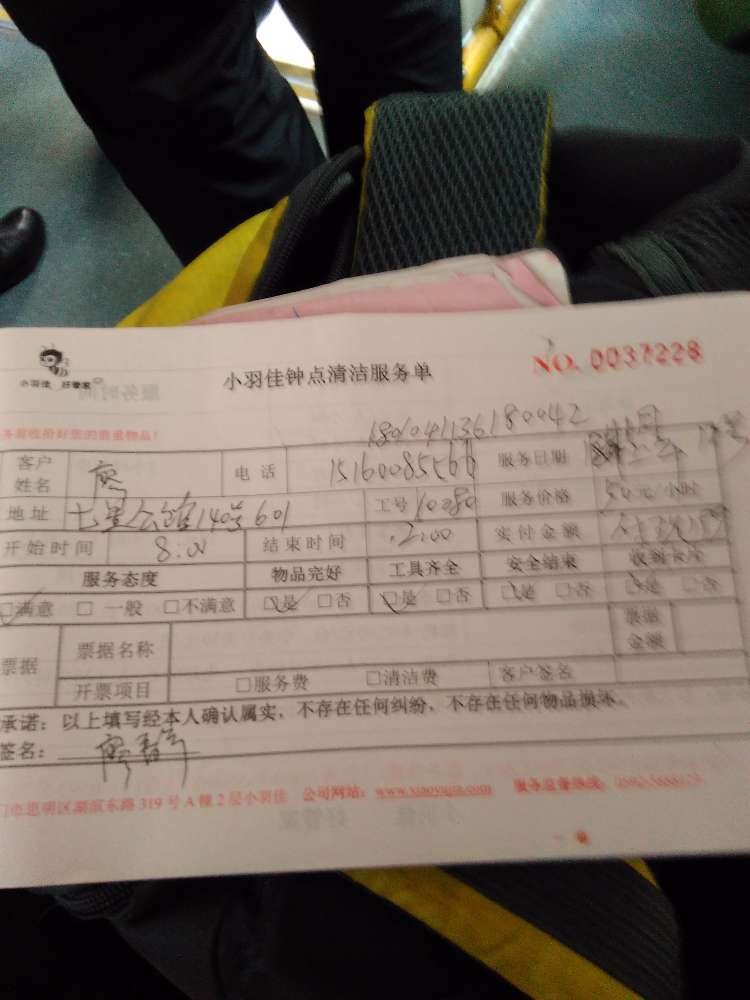 小羽佳 好管家
小羽佳钟点清洁服务单
NO. 0037228
务前收拾好您的贵重物品！
180104136180042
客户姓名 廖 电话 15160085566 服务日期
地址 七星公馆140号601 工号 10080 服务价格 50元/小时
开始时间 8:00 结束时间 12:00 实付金额
服务态度 物品完好 工具齐全 安全结束
□满意 □一般 □不满意 □是 □否 □是 □否 □是 □否 □是 □否
票据 票据名称 票据金额
开票项目 □服务费 □清洁费 客户签名
承诺：以上填写经本人确认属实，不存在任何纠纷，不存在任何物品损坏。
签名：
门市思明区湖滨东路319号A幢2层小羽佳 公司网站：www.xiaoyujia.com 服务监督热线：